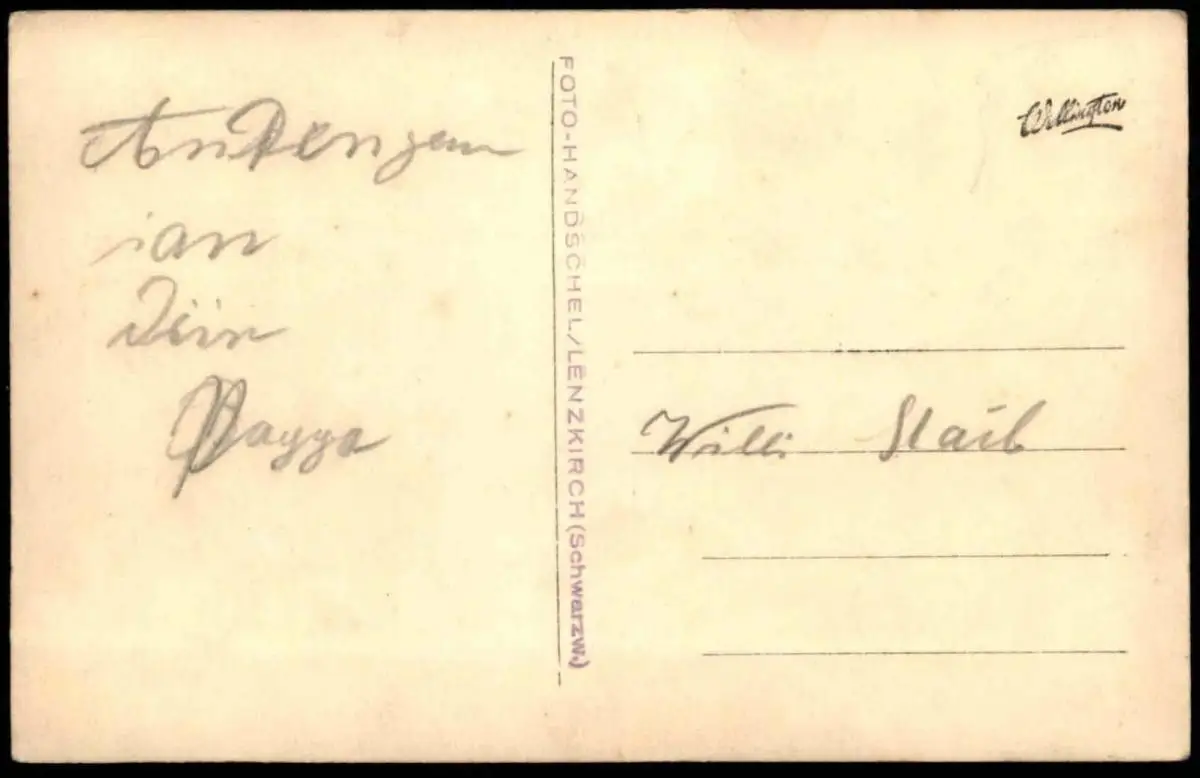 ian
Dein
FOTO-HANDSCHEL/LENZKIRCH (Schwarzw.)
Wellington
Willi Staib